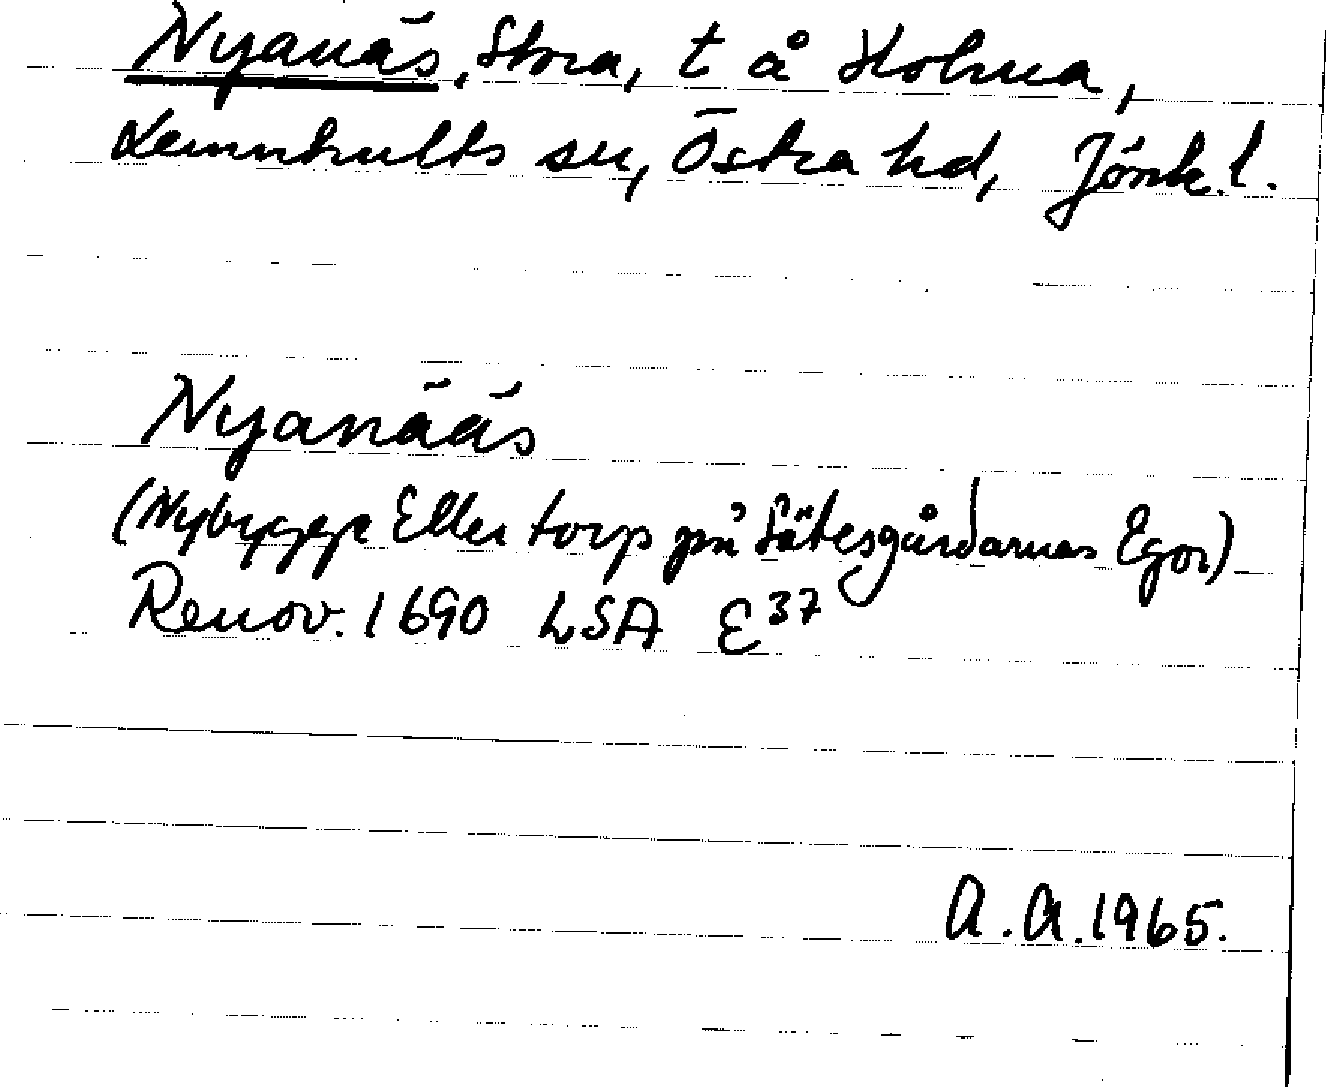 Nyanäs, Stora, t å Holma,
Lemnhults sn, Östra hd, Jönk.l.
Nyanääs
(Nybygge Eller torp på Sätesgårdarnas Egor)
Renov. 1690 LSA E37
A.A.1965.